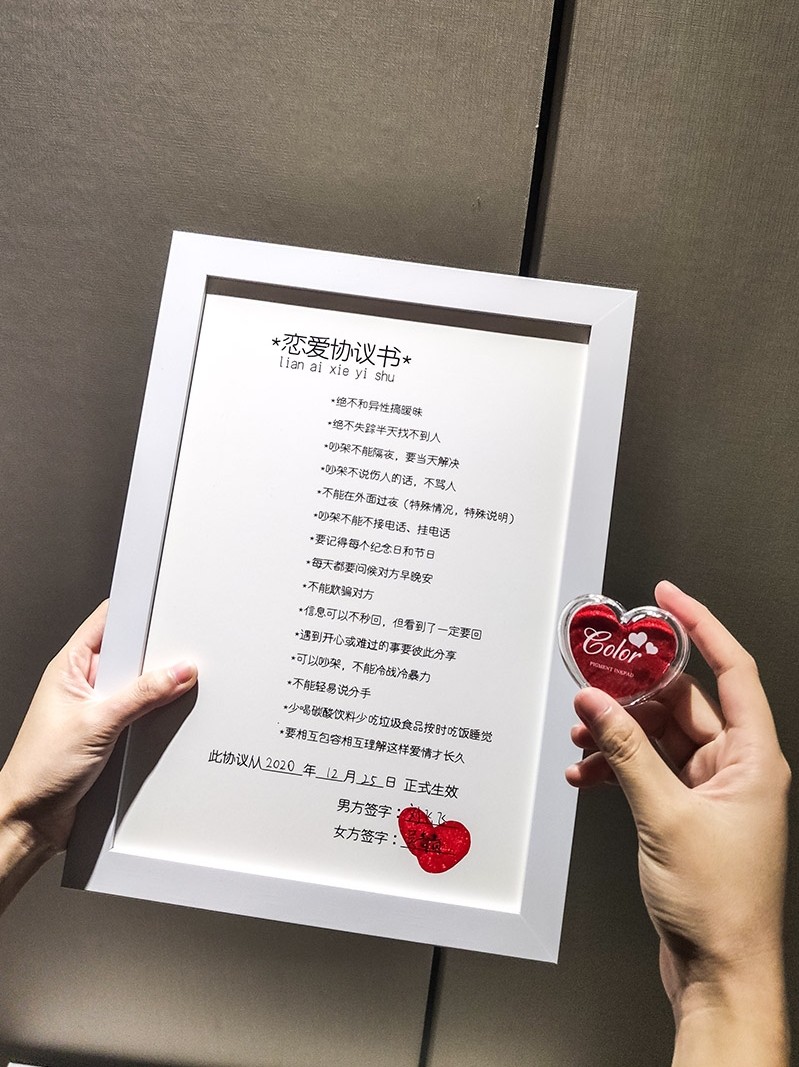 *恋爱协议书*
lian ai xie yi shu
*绝不和异性搞暧昧
*绝不失踪半天找不到人
*吵架不能隔夜，要当天解决
*吵架不说伤人的话，不骂人
*不能在外面过夜（特殊情况，特殊说明）
*吵架不能不接电话、挂电话
*要记得每个纪念日和节日
*每天都要问候对方早晚安
*不能欺骗对方
*信息可以不秒回，但看到了一定要回
*遇到开心或难过的事要彼此分享
*可以吵架，不能冷战冷暴力
*不能轻易说分手
*少喝碳酸饮料少吃垃圾食品按时吃饭睡觉
*要相互包容相互理解这样爱情才长久
此协议从2020年12月25日 正式生效
男方签字：
女方签字：
Color
PIGMENT INKPAD